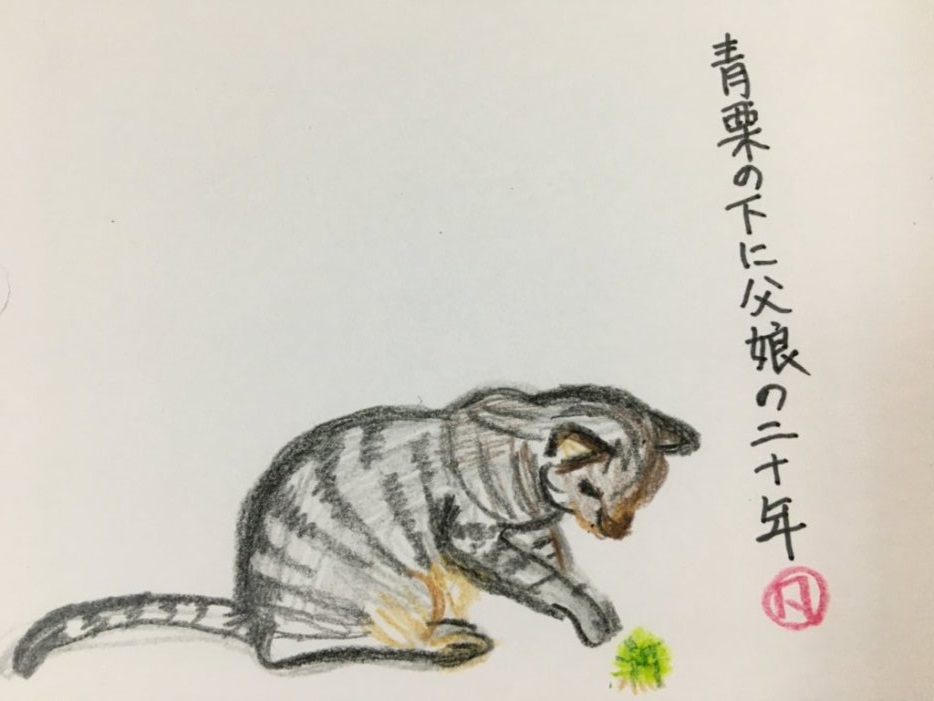 青栗の下に父娘の二十年
凡